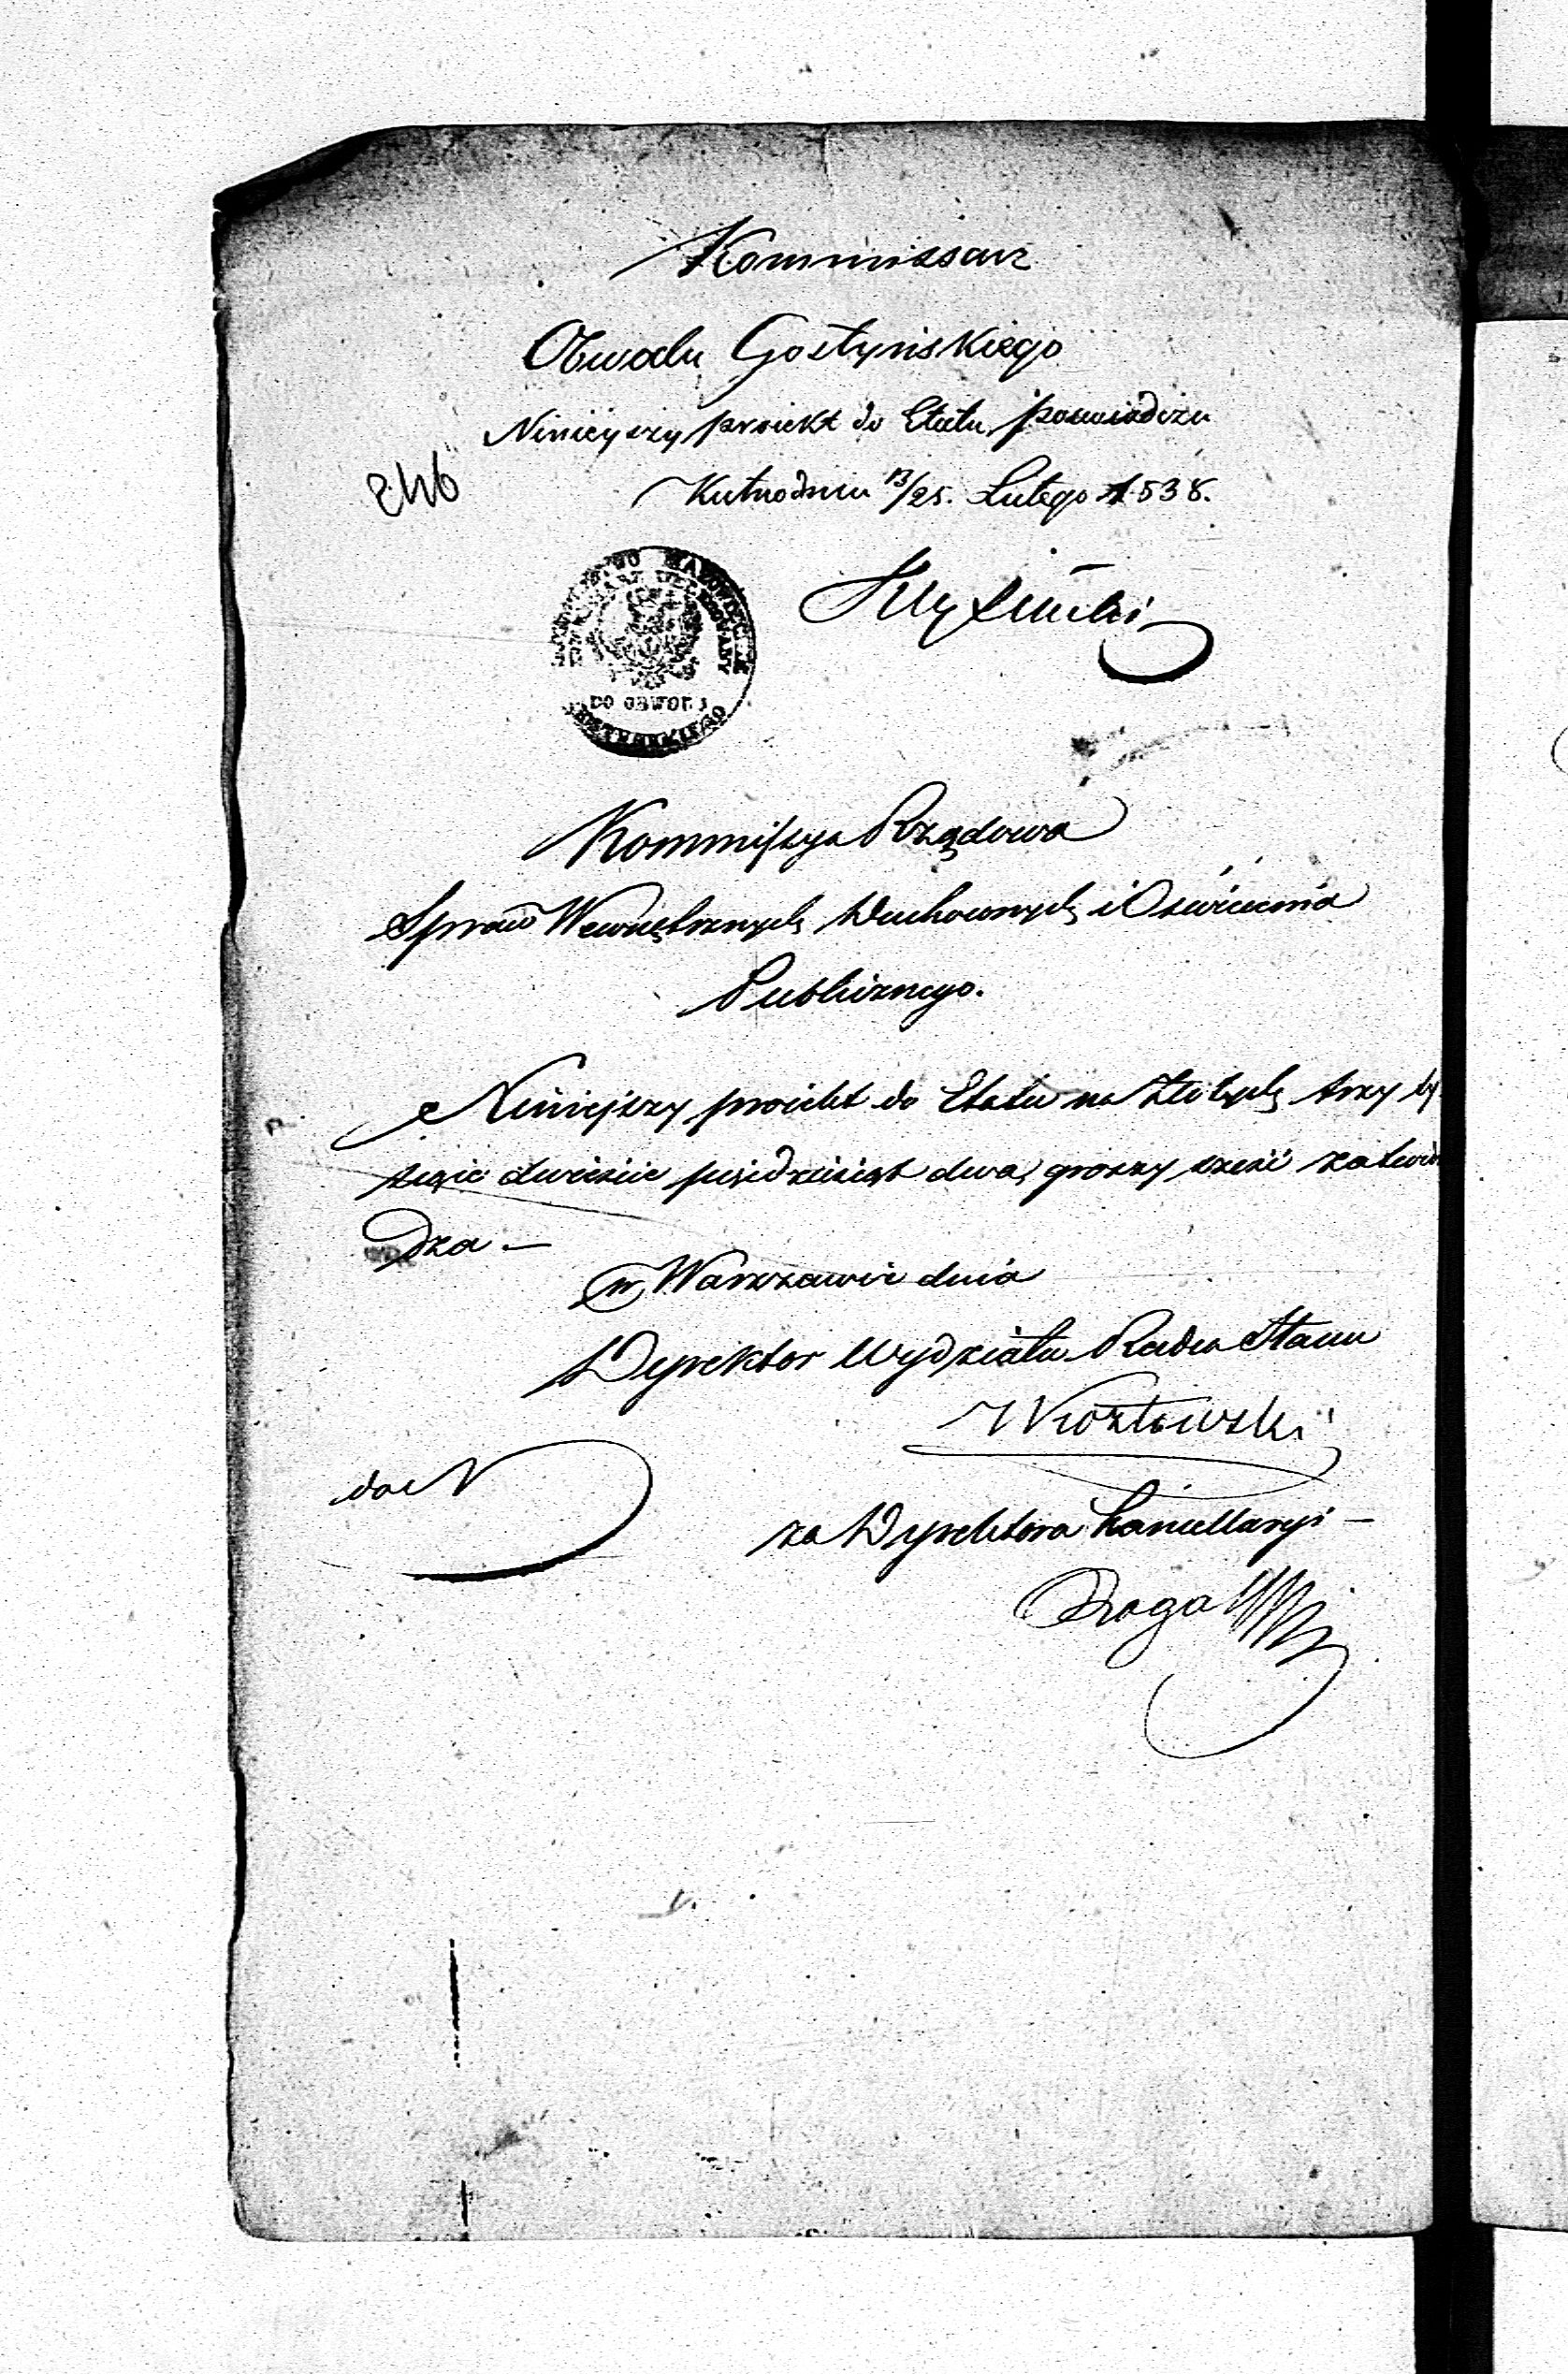 Kommissarz
Obwodu Gostyńskiego
Ninieyszy proiekt do Etatu poswiadcza
Kutno dnia 13/25. Lutego 1838.
DO OBWODU
Kommissya Rządowa
Spraw Wewnętrznych Duchownych i Oświecenia
Publicznego.
Niniejszy proiekt do Etatu na Złotych trzy ty
siące dwieście pięćdziesiąt dwa, groszy sześć zatwier
dza. —
w Warszawie dnia
Dyrektor Wydziału Radca Stanu
Kozłowski
za Dyrektora Kancellaryi —